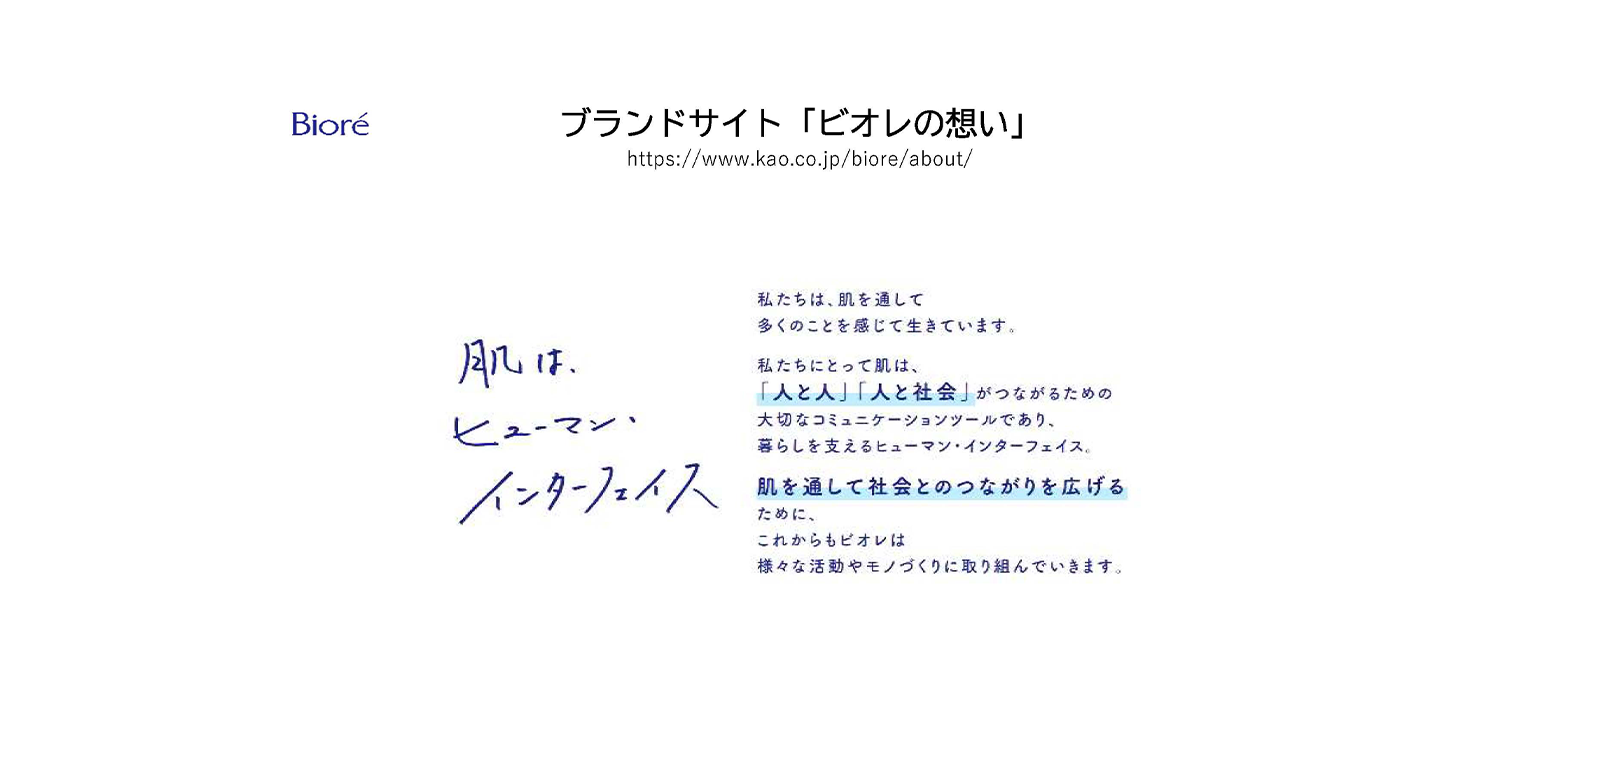 Bioré
ブランドサイト「ビオレの想い」
https://www.kao.co.jp/biore/about/
肌は、
ヒューマン・
インターフェイス
私たちは、肌を通して
多くのことを感じて生きています。
私たちにとって肌は、
「人と人」「人と社会」がつながるための
大切なコミュニケーションツールであり、
暮らしを支えるヒューマン・インターフェイス。
肌を通して社会とのつながりを広げる
ために、
これからもビオレは
様々な活動やモノづくりに取り組んでいきます。